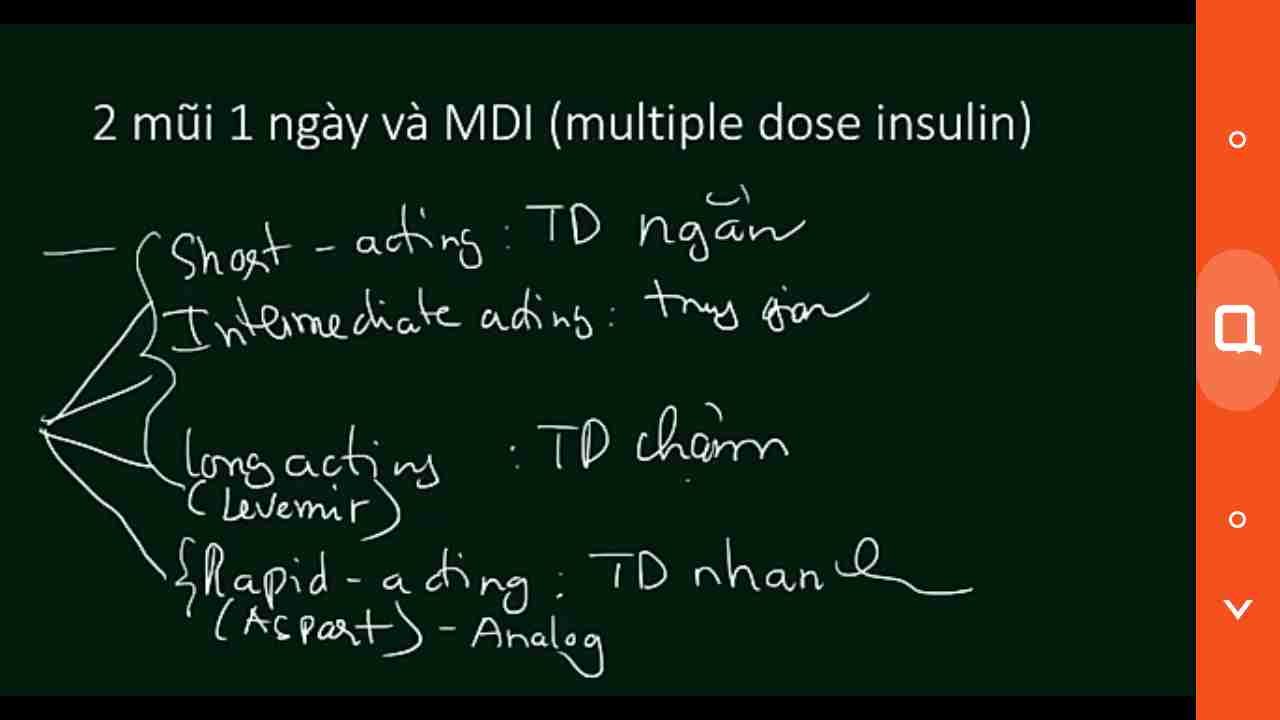 2 mũi 1 ngày và MDI (multiple dose insulin)
Short - acting : TD ngắn
Intermediate acting : trung gian
Long acting : TD chậm
(Levemir)
Rapid - acting : TD nhanh
(Aspart) - Analog